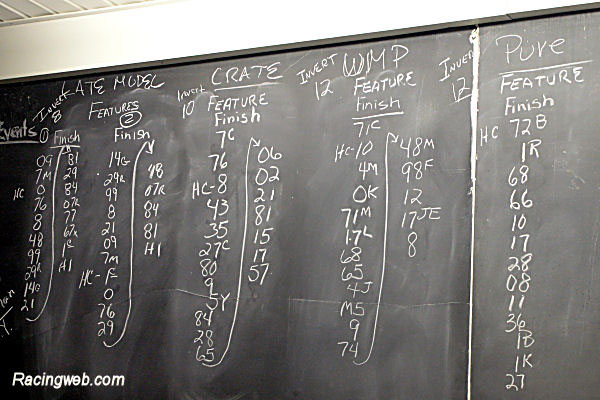 LATE MODEL
Invert
8
Events
FEATURES
①
Finish
09
7M
HC 0
76
8
48
99
29R
14G
21
81
29
84
07R
77
67R
1C
H1
②
Finish
14G
29R
99
8
21
09
7M
HC-F
0
76
29
48
07R
84
81
H1
CRATE
Invert
10
FEATURE
Finish
7C
76
HC-8
43
35
27C
80
9
5Y
84
28
65
06
02
21
81
15
17
57
WMP
INVERT
12
FEATURE
Finish
71C
HC-10
4M
0K
71M
17L
68
65
4J
M5
9
74
48M
98F
12
17JE
8
Pure
INVERT
12
FEATURE
Finish
HC 72B
1R
68
66
10
17
28
08
11
36
1B
1K
27
Racingweb.com